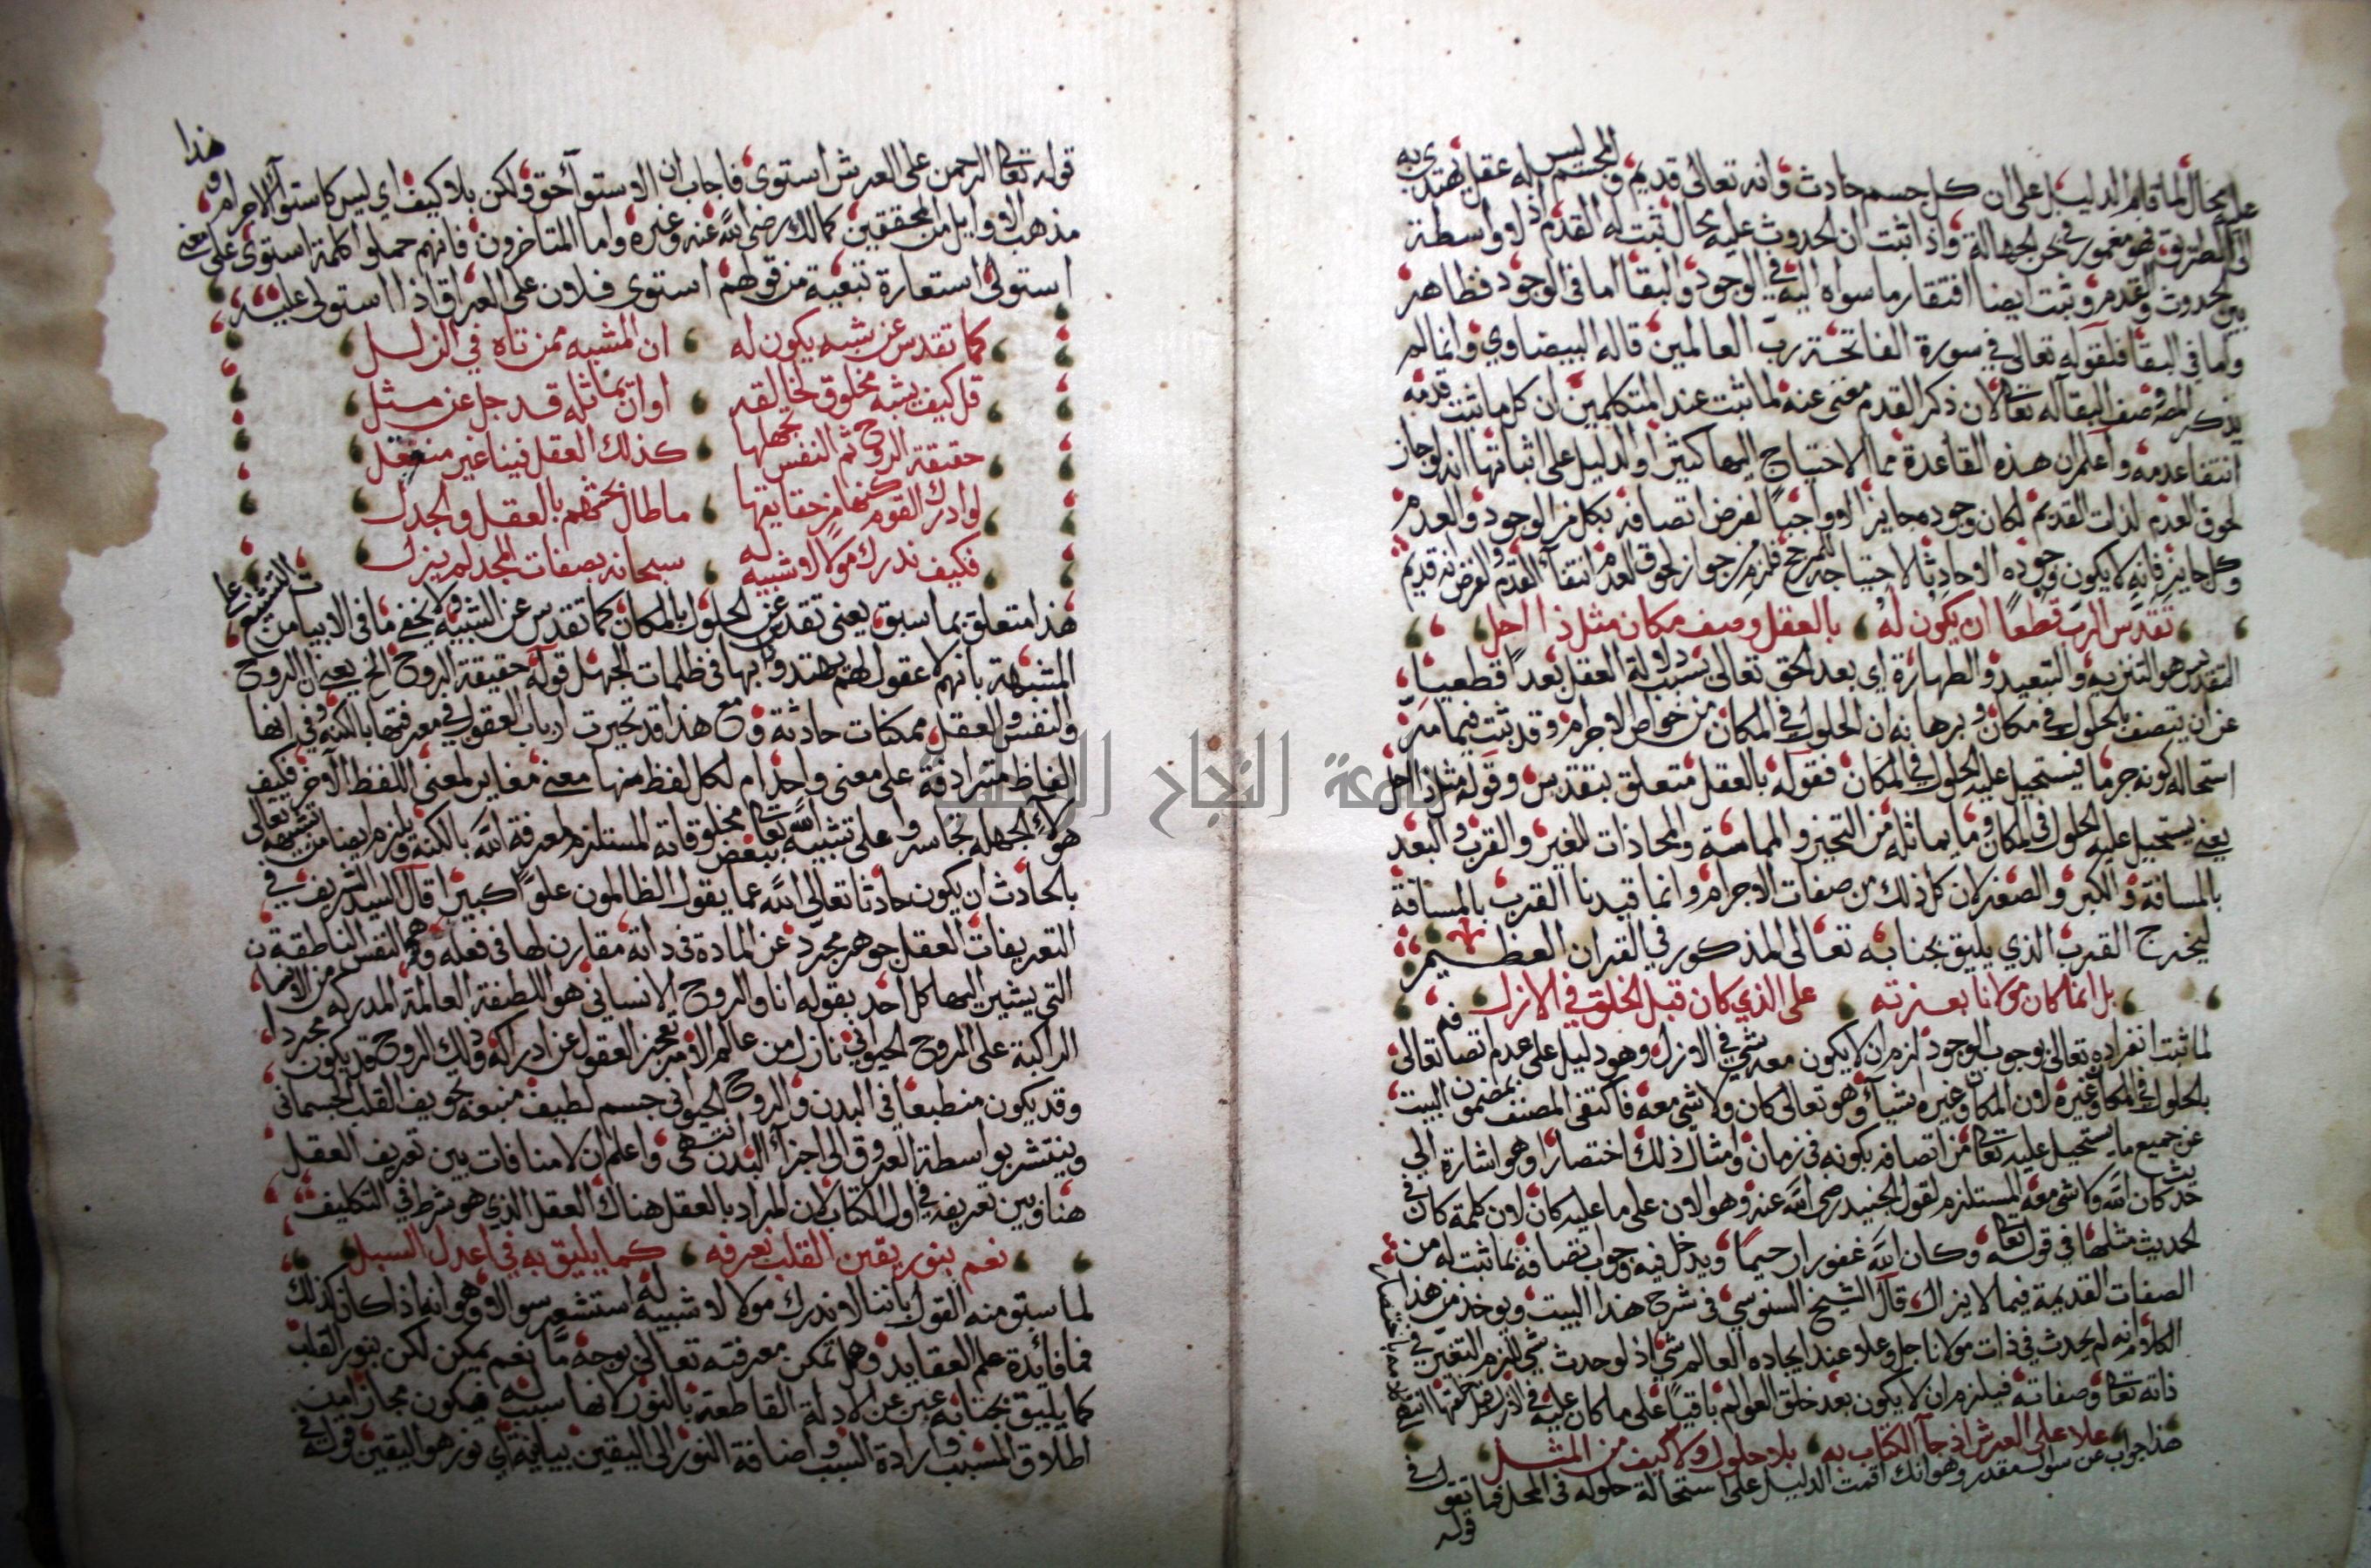 عليه محال لما قام الدليل على ان كل جسم حادث وانه تعالى قديم والمجسم ليس له عقل يهتدي به
الى الطريق فهو مغمور في بحر الجهالة واذا ثبت ان الحدوث عليه محال ثبت له القدم اذ لا واسطة
بين الحدوث والقدم وثبت ايضا افتقار ما سواه اليه في الوجود والبقا اما في الوجود فظاهر
واما في البقا فلقوله تعالى في سورة الفاتحة رب العالمين قاله البيضاوي وانما لم
يذكر المص وصف البقا له تعالى لان ذكر القدم مغنى عنه لما ثبت عند المتكلمين ان كل ما ثبت قدمه
انتفا عدمه واعلم ان هذه القاعدة مما الاحتياج اليها كثيرا والدليل على اثباتها انه لو جاز
لحوق العدم لذات القديم لكان وجوده جايزا لا واجبا لفرض اتصافه بكل من الوجود والعدم
وكل جايز فانه لا يكون وجوده الا حادثا لاحتياجه للمرجح فلزم من جواز لحوق العدم انتفا القدم والفرض انه قديم
تقدس الرب قطعا ان يكون له بالعقل وصف مكان مثل ذا احل
التقديس هو التنزيه والتبعيد والطهارة اي بعد الحق تعالى بسبب دلالة العقل بعدا قطعيا
عن ان يتصف بالحلول في مكان وبرهانه ان الحلول في المكان من خواص الاجرام وقد ثبت فيما مر
استحالة كونه جرما فيستحيل عليه الحلول في المكان فقوله بالعقل متعلق بتقدس وقوله مثل ذا احل
يعني يستحيل عليه الحلول في المكان وما يماثله من التحيز والمماسة والمحاذات للغير والقرب والبعد
بالمسافة والكبر والصغر لان كل ذلك من صفات الاجرام وانما قيدنا القرب بالمسافة
ليخرج القرب الذي يليق بجنابه تعالى المذكور في القران العظيم
بل انما كان مولانا بعزته على الذي كان قبل الخلق في الازل
لما ثبت انفراده تعالى بوجوب الوجود لزم ان لا يكون معه شي في الازل وهو دليل على عدم اتصافه تعالى
بالحلول في المكان وغيره لان المكان وغيره اشيآ وهو تعالى كان ولا شي معه فاكتفى المصنف بمضمون البيت
عن جميع ما يستحيل عليه تعالى من اتصافه بكونه في زمان وامثال ذلك اختصارا وهو اشارة الى
حديث كان الله ولا شي معه المستلزم لقول الجنيد رضى الله عنه وهو الان على ما عليه كان لان كلمة كان في
الحديث مثلها في قوله تعالى وكان الله غفورا رحيما ويدخل فيه وجوب اتصافه بما ثبت له من
الصفات القديمة فيما لا يزال قال الشيخ السنوسي في شرح هذا البيت ويوخذ من هذا
الكلام انه لم يحدث في ذات مولانا جل وعلا عند ايجاده العالم شي اذ لو حدث شي للزم التغير في
ذاته تعالى وصفاته فيلزم ان لا يكون بعد خلق العوالم باقيا على ما كان عليه في الازل
علا على العرش اذ جآ الكتاب به بلا حلول ولا كيف من المثل
هذا جواب عن سوال مقدر وهو انك اقمت الدليل على استحالة حلوله في المحل فما تقول في
قوله
قوله تعالى الرحمن على العرش استوى فاجاب ان الاستوآ حق ولكن بلا كيف اي ليس كاستوآ الاجرام وهذا
مذهب الاوايل من المحققين كمالك رضي الله عنه وغيره واما المتاخرون فانهم حملوا كلمة استوى على معنى
استولى استعارة تبعية من قولهم استوى فلان على العراق اذا استولى عليه
كما تقدس عن شبه يكون له ان المشبه ممن تاه في الزلل
قل كيف يشبه مخلوق لخالقه او ان يماثله قد جل عن مثل
حقيقة الروح ثم النفس نجهلها كذلك العقل فينا غير منعقل
لو ادرك القوم كنها من حقايقها ما طال بحثهم بالعقل والجدل
فكيف ندرك مولا لا شبيه له سبحانه بصفات المجد لم يزل
هذا متعلق بما سبق يعنى تقدس عن الحلول بالمكان كما تقدس عن الشبيه ولا يخفى ما في الابيات من التشنيع على
المشبهة بانهم لا عقول لهم يهتدون بها في ظلمات الجهل قوله حقيقة الروح الخ يعني ان الروح
والنفس والعقل ممكنات حادثة ومع هذا قد تحيرت ارباب العقول في معرفتها بالكنه وفي انها
الفاظ مترادفة على معنى واحد ام لكل لفظ منها معنى مغاير لمعنى اللفظ الآخر فكيف
هولآء الجهلة تجاسروا على تشبيه الله تعالى ببعض مخلوقاته المستلزم لمعرفة الله بالكنه ويلزم ايضا من تشبيهه تعالى
بالحادث ان يكون حادثا تعالى الله عما يقول الظالمون علوا كبيرا قال السيد الشريف في
التعريفات العقل جوهر مجرد عن المادة في ذاته مقارن لها في فعله وهى النفس الناطقة
التي يشير اليها كل احد بقوله انا والروح الانساني هو اللطيفة العالمة المدركه من الانسان
الراكبة على الروح الحيواني نازل من عالم الامر تعجز العقول عن ادراكه وذلك الروح قد يكون مجردا
وقد يكون منطبعا في البدن والروح الحيواني جسم لطيف منبعه تجويف القلب الجسماني
وينتشر بواسطة العروق الى اجزآ البدن انتهى واعلم ان لا منافات بين تعريف العقل
هنا وبين تعريفه في اول الكتاب لان المراد بالعقل هناك العقل الذي هو شرط في التكليف
نعم بنور يقين القلب نعرفه كما يليق به في اعدل السبل
لما ستو منه القول باننا لا ندرك مولا لا شبيه له استشعر سوالا وهو انه اذا كان كذلك
فما فائدة علم العقايد وهل تمكن معرفته تعالى بوجه ما نعم يمكن لكن بنور القلب
كما يليق بجنابه عبر عن الادلة القاطعة بالنور لانها سبب له فيكون مجازا من
اطلاق المسبب وارادة السبب واضافة النور الى اليقين بيانية اي نور هو اليقين قوله في
جامعة النجاح الوطنية